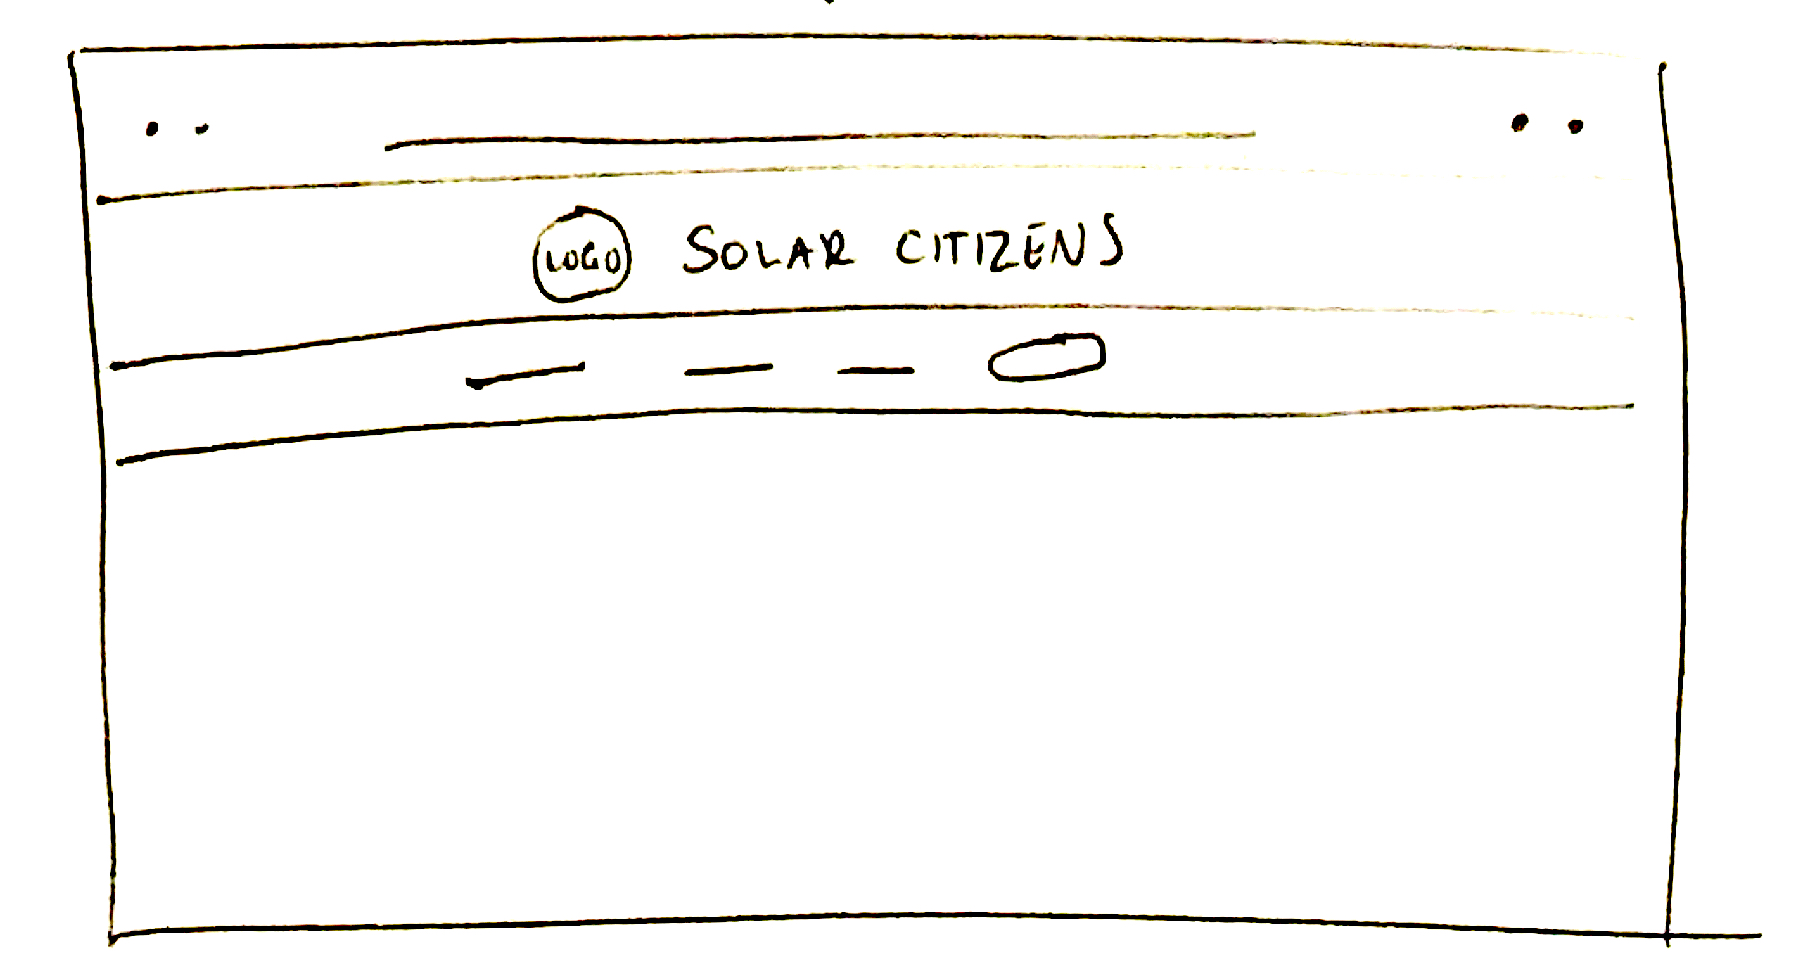 LOGO SOLAR CITIZENS